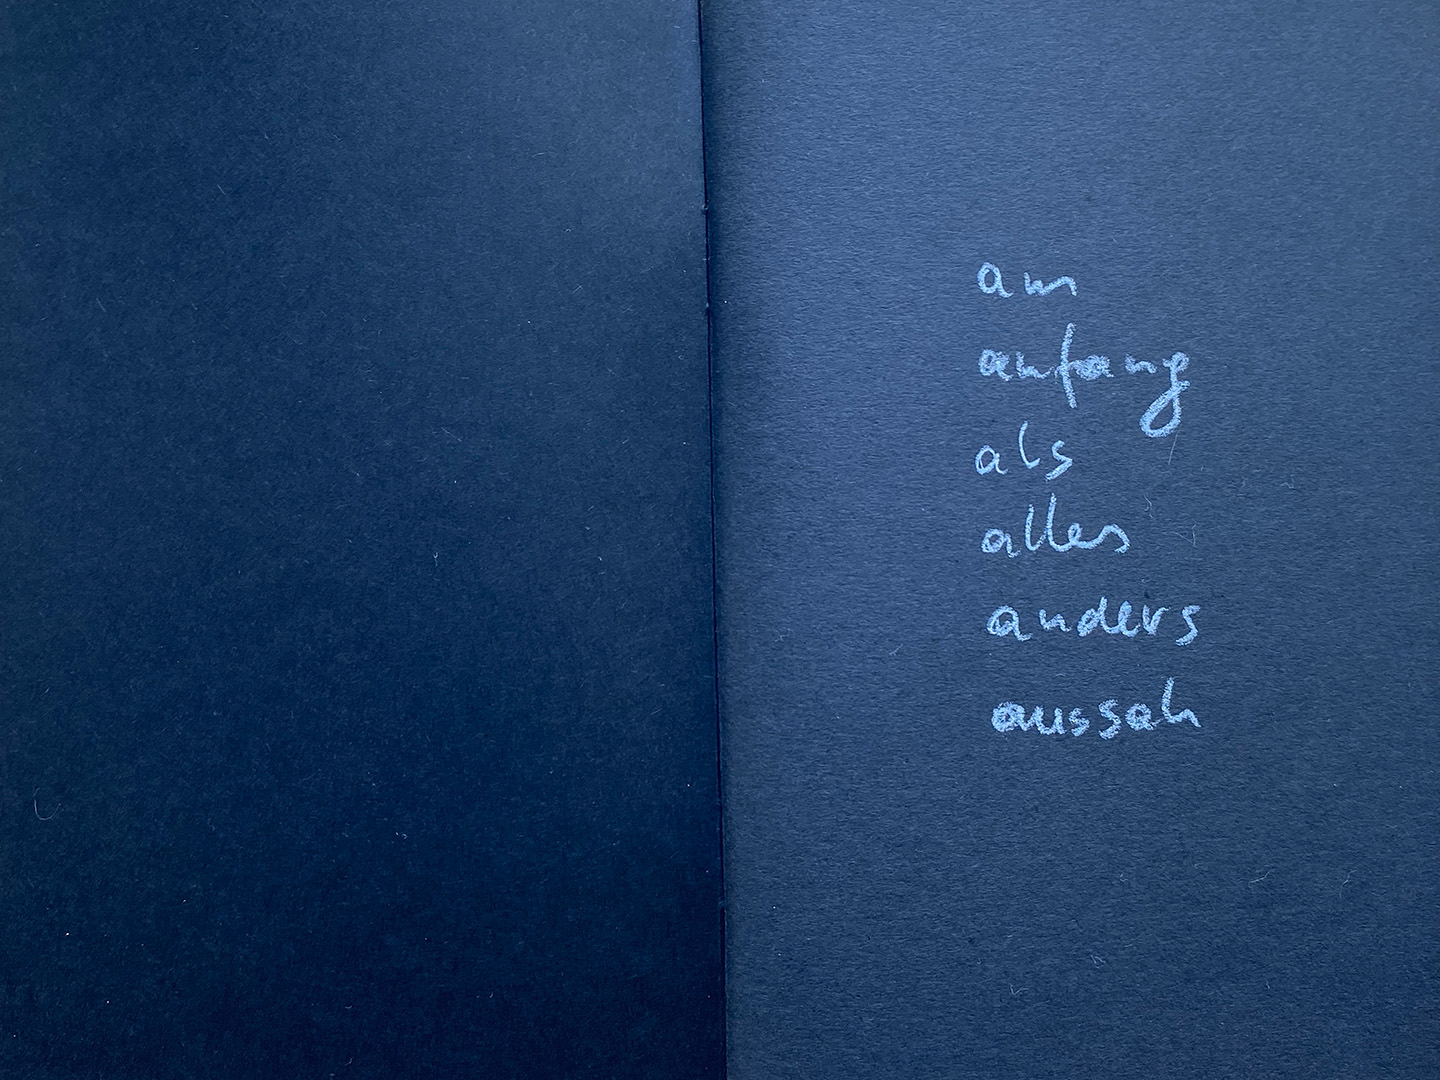 am
anfang
als
alles
anders
aussah